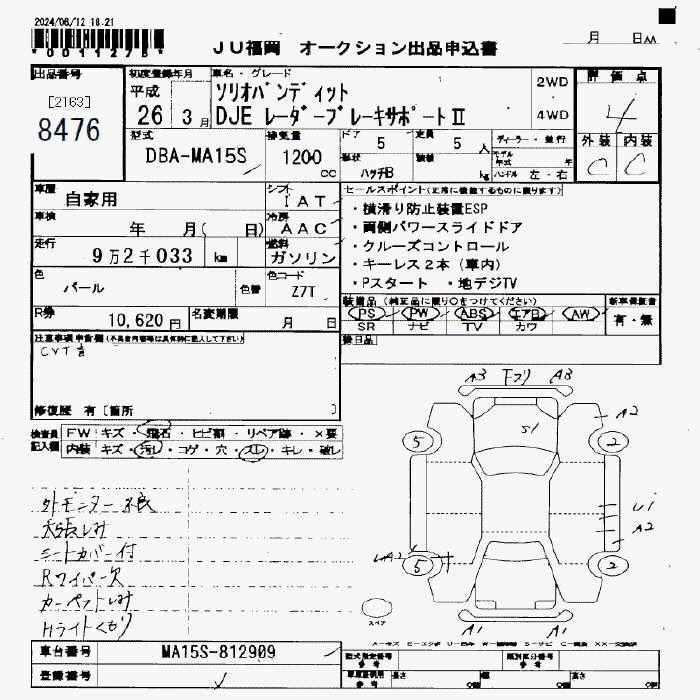 2024/06/12 18.21
*0011275*
JU福岡 オークション出品申込書
月 日
出品番号
[2163]
8476
初度登録年月
平成
26 3月
車名・グレード
ソリオバンディット
DJE レーダーブレーキサポートⅡ
2WD
4WD
評価点
4
外装 内装
C C
型式
DBA-MA15S
排気量
1200 cc
ドア 5
定員 5 人
形状 ハッチB
kg
ディーラー・並行
モデル年式 年
ハンドル 左・右
車歴
自家用
シフト
IAT
車検
年 月( 日)
冷房
AAC
走行
9万2千033 km
燃料
ガソリン
色
パール
色替
色コード
Z7T
R券
10,620 円
名変期限
月 日
セールスポイント(正常に機能するものに限ります)
・横滑り防止装置ESP
・両側パワースライドドア
・クルーズコントロール
・キーレス2本(車内)
・Pスタート ・地デジTV
装備品(純正品に限り〇をつけてください)
PS PW ABS エアB AW
SR ナビ TV カワ
新車保証書
有・無
後日品
注意事項申告欄(不具合内容等は具体的に記入して下さい)
CVT音
修復歴 有 [箇所
検査員記入欄
FW キズ・飛石・ヒビ割・リペア跡・×要
内装 キズ・汚レ・コゲ・穴・スレ・キレ・破レ
外モニター不良
天張しみ
シートカバー付
Rワイパー欠
カーペットしみ
Hライトくもり
A3 下スリ A3
S1
A2
5
2
U1
A2
UA2
5
2
A1 A1
スペア
車台番号
MA15S-812909
登録番号
型式指定番号 参考
類別区分番号 参考
車庫証明用 参考
長さ
幅
高さ